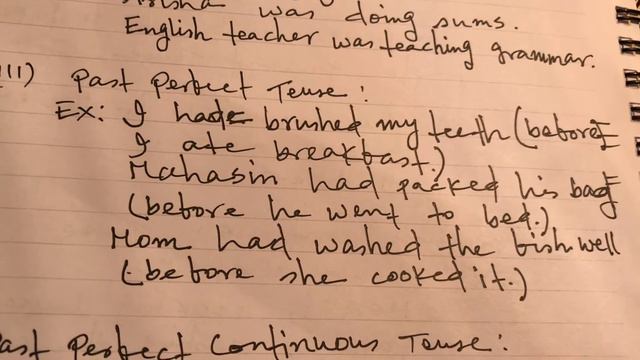 was doing sums.
English teacher was teaching grammar.
III) Past Perfect Tense:
Ex: I had brushed my teeth (before
I ate breakfast.)
Mahasin had packed his bag
(before he went to bed.)
Mom had washed the fish well
(before she cooked it.)
Past Perfect Continuous Tense: